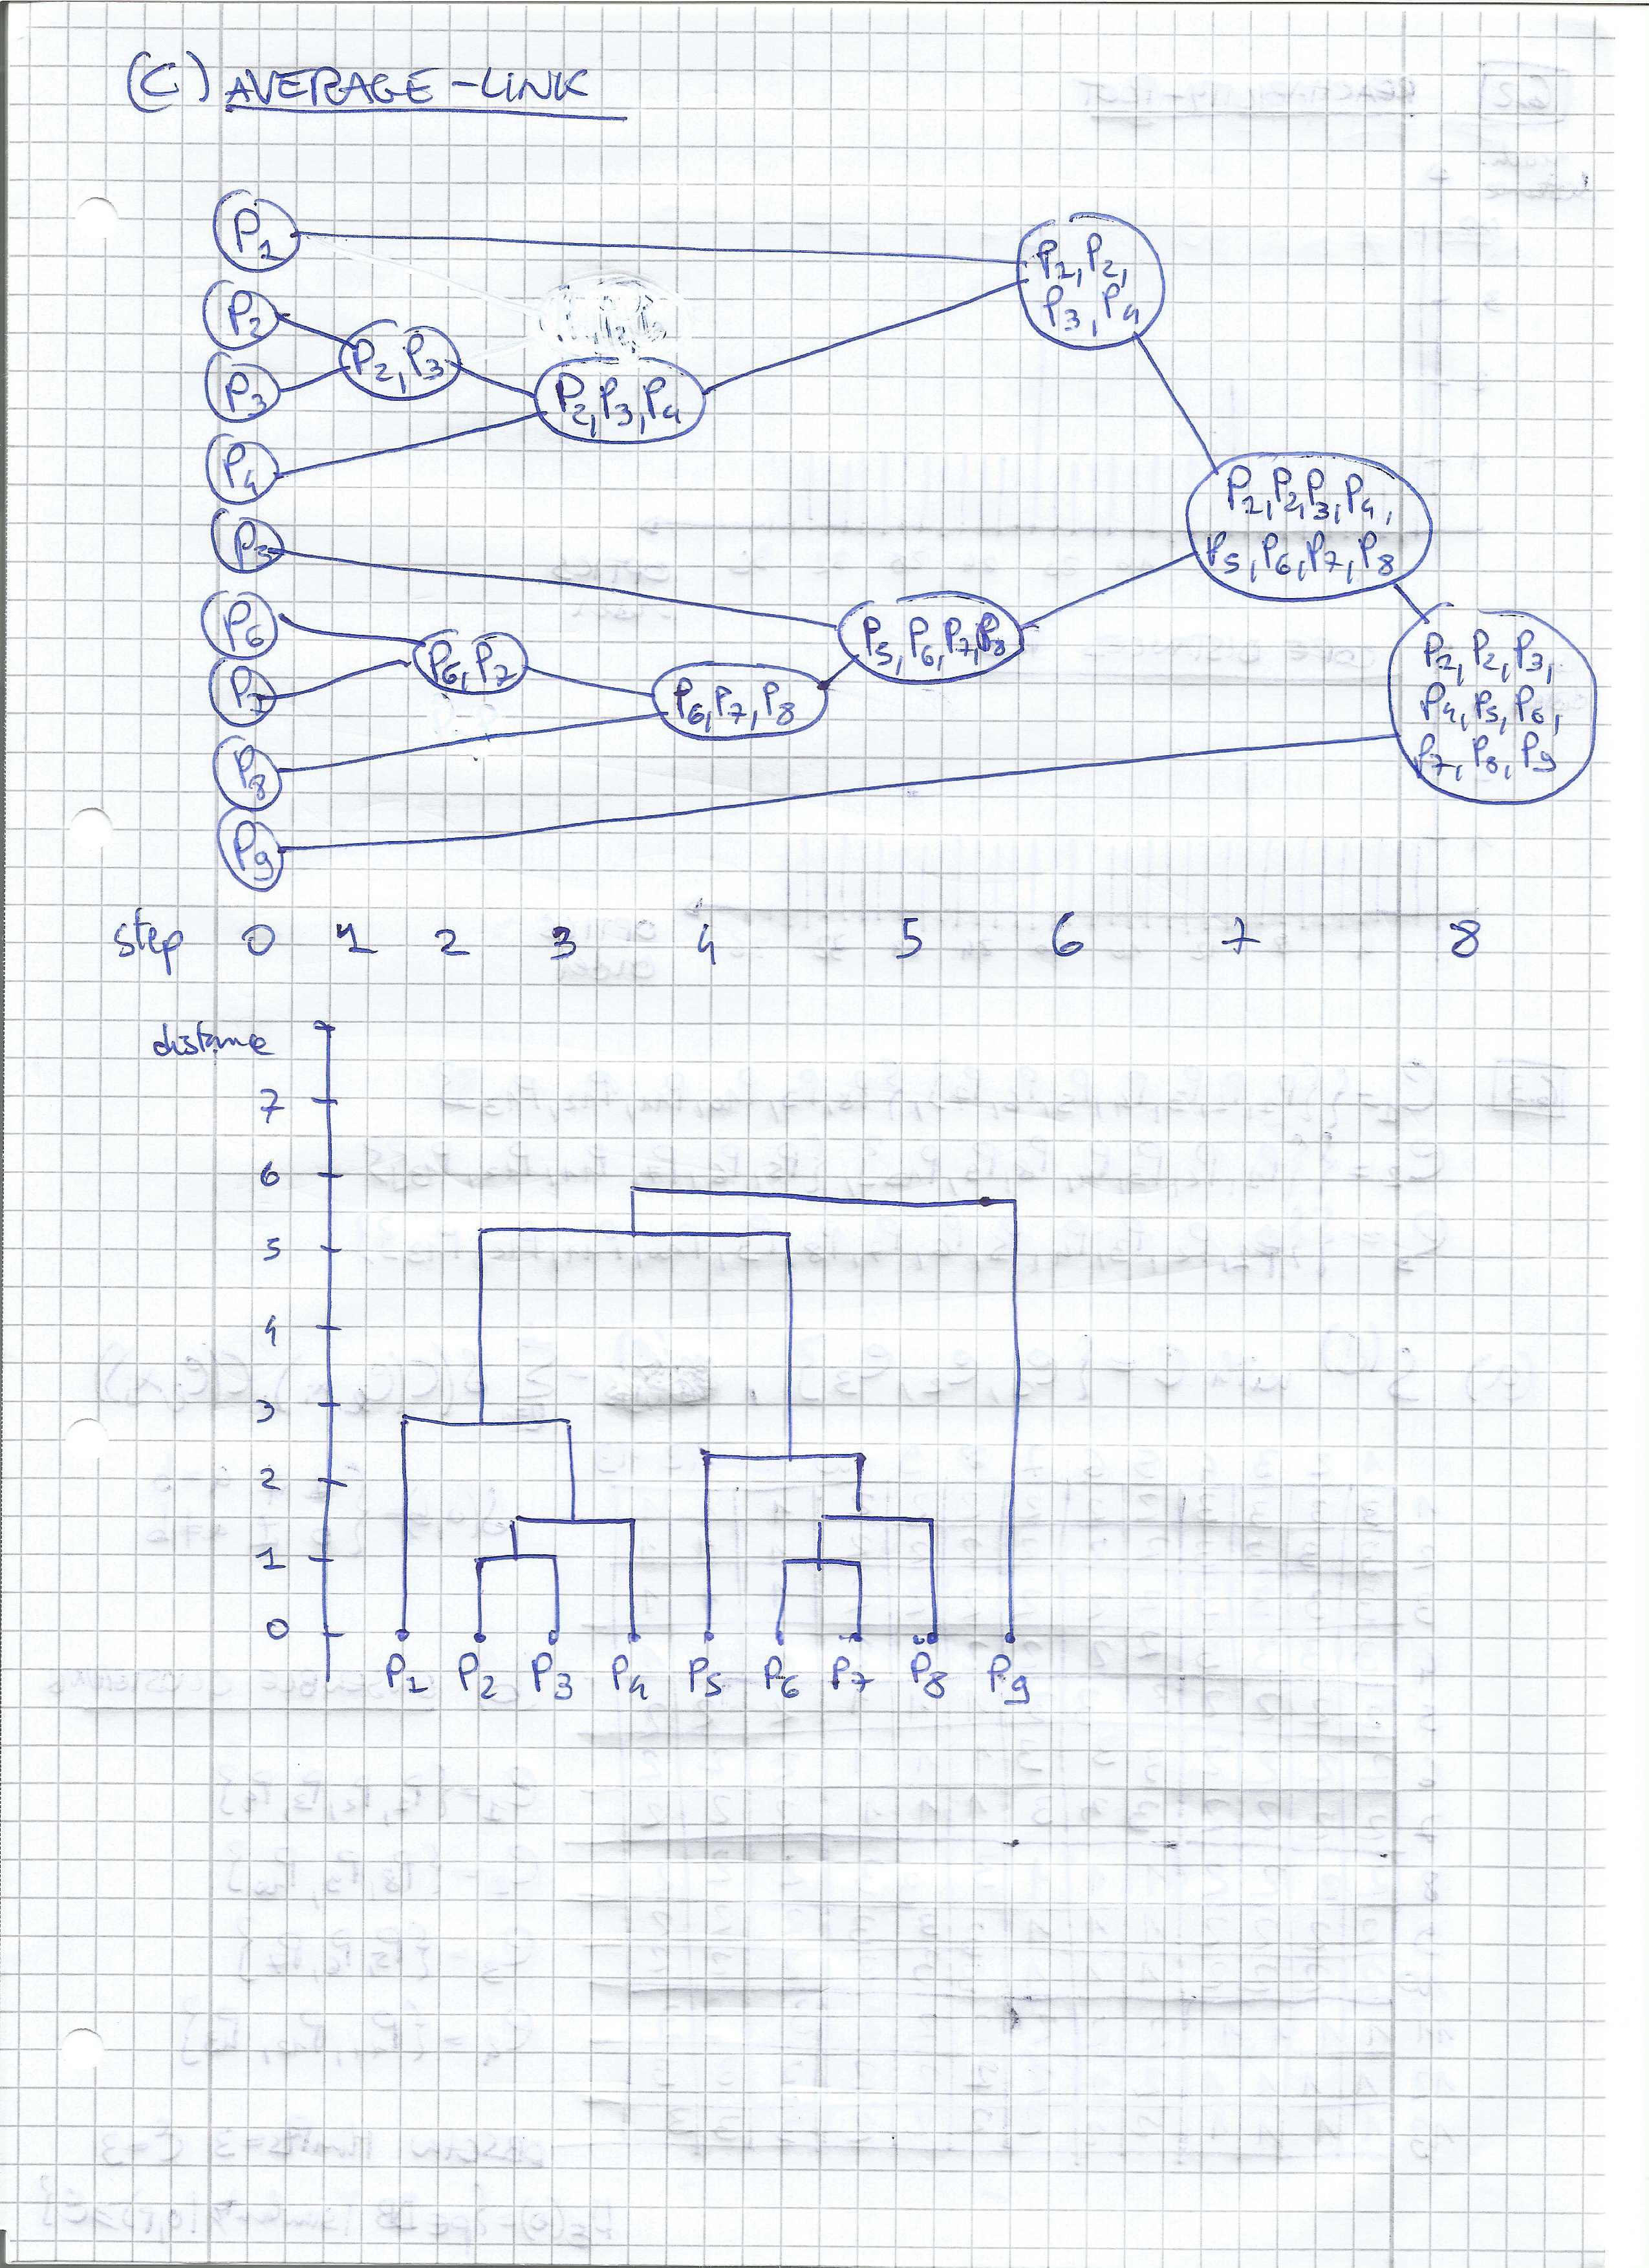 (C) AVERAGE-LINK
P1
P2
P3
P4
P5
P6
P7
P8
P9
P2, P3
P6, P7
P2, P3, P4
P6, P7, P8
P5, P6, P7, P8
P1, P2,
P3, P4
P1, P2, P3, P4,
P5, P6, P7, P8
P1, P2, P3,
P4, P5, P6,
P7, P8, P9
step 0 1 2 3 4 5 6 7 8
distance
7
6
5
4
3
2
1
0
P1 P2 P3 P4 P5 P6 P7 P8 P9